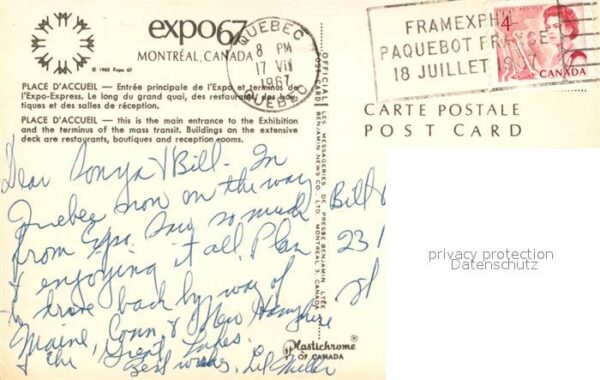 expo67
MONTRÉAL, CANADA
© 1963 Expo 67
PLACE D'ACCUEIL — Entrée principale de l'Expo et terminus de
l'Expo-Express. Le long du grand quai, des restaurants, des bou-
tiques et des salles de réception.
PLACE D'ACCUEIL — this is the main entrance to the Exhibition
and the terminus of the mass transit. Buildings on the extensive
deck are restaurants, boutiques and reception rooms.
QUEBEC
8 PM
17 VII
1967
QUEBEC
FRAMEXPH
PAQUEBOT FRANCE
18 JUILLET 1967
POSTES POSTAGE
4
CANADA
CARTE POSTALE
POST CARD
OFFICIAL POST CARD
LES MESSAGERIES DE PRESSE BENJAMIN ENRG.
BENJAMIN NEWS CO. LTD. MONTREAL 3, CANADA
Dear Tonya & Bill - In
Quebec now on the way
from Expo. Saw so much
& enjoying it all. Plan
to trave back by way of
Maine, Conn & New Hampshire
& the Great Lakes.
Best wishes, Lil Miller
Bill &
231
privacy protection
Datenschutz
Plastichrome
OF CANADA